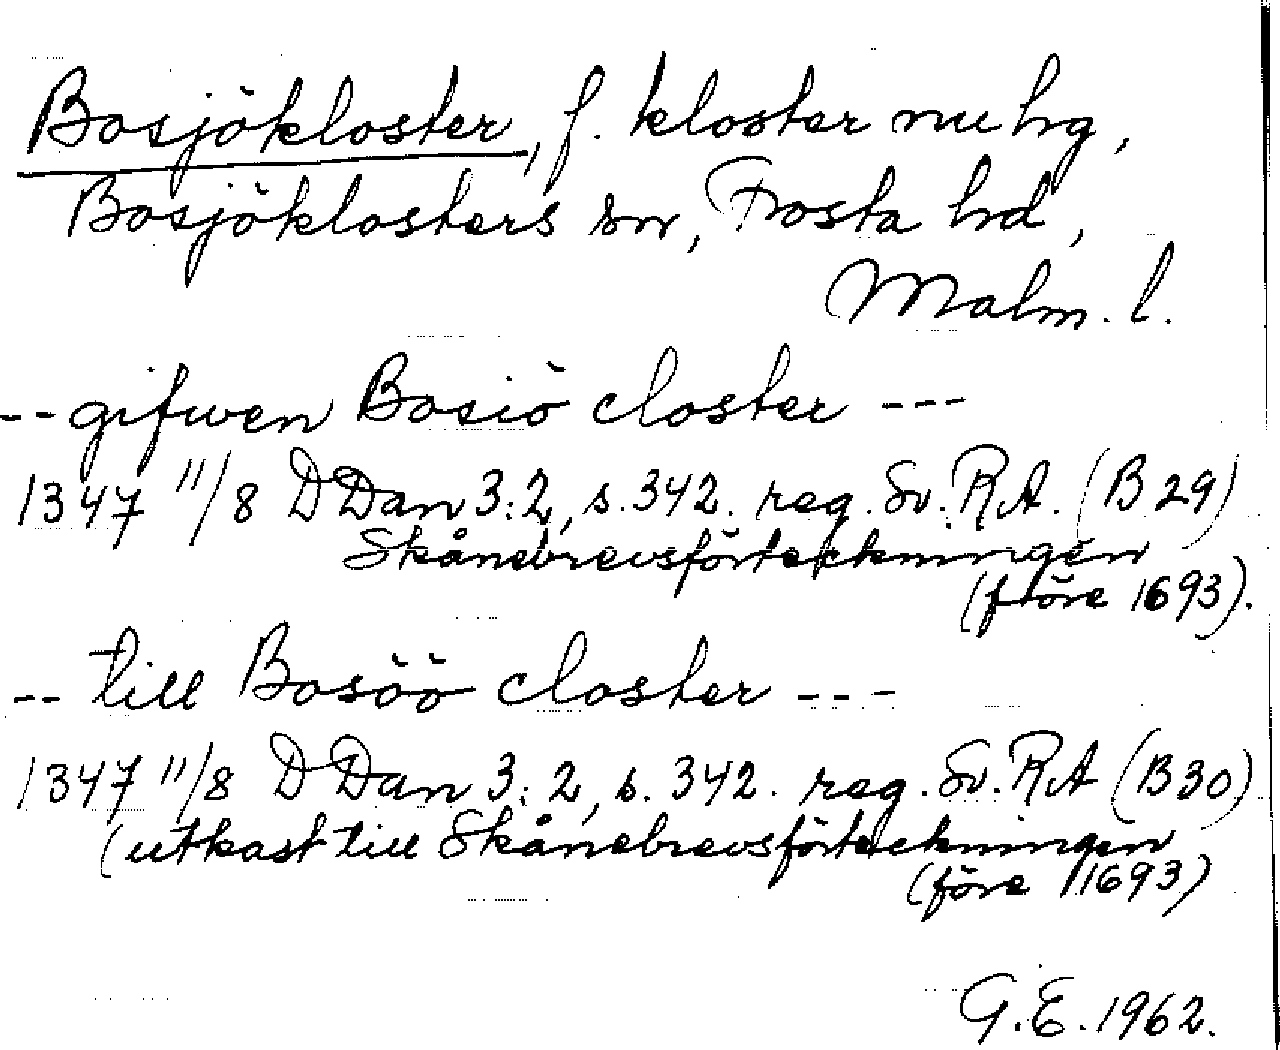 Bosjökloster, f. kloster nu hg,
Bosjöklosters sn, Frosta hd,
Malm. l.
-- gifwen Bosiö closter ---
1347 11/8 DDan 3:2, s. 342. reg. Sv. RA. (B 29)
Skånebrevsförteckningen
(före 1693).
-- till Bosöö closter ---
1347 11/8 DDan 3:2, s. 342. reg. Sv. RA (B 30)
(utkast till Skånebrevsförteckningen
(före 1693)
G.E. 1962.